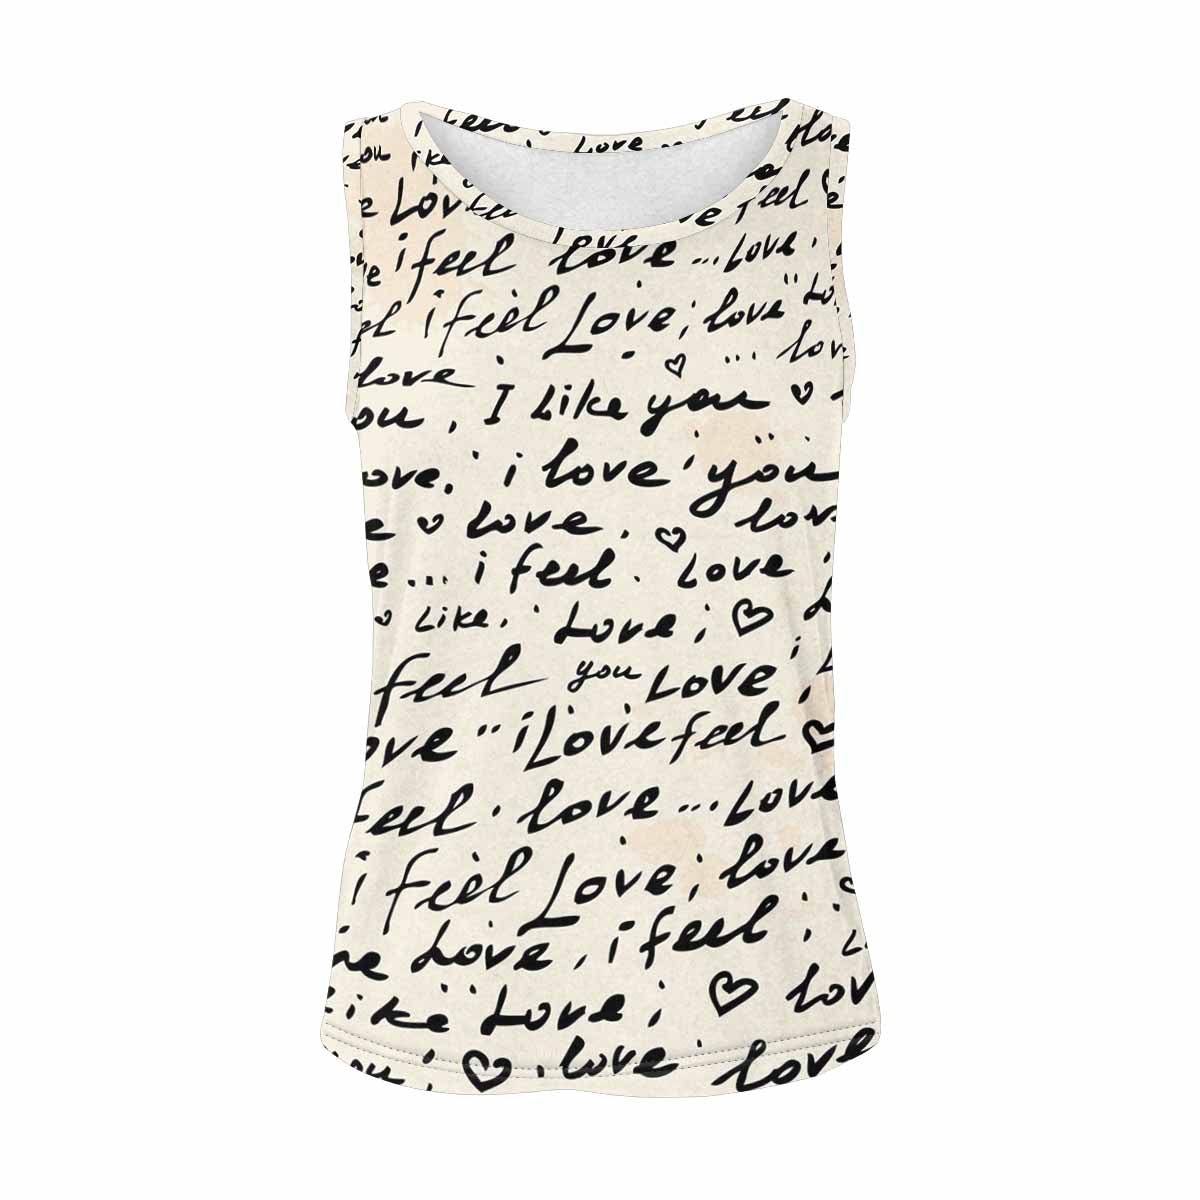 i feel love feel
you like love
Love feel
i feel love... Love.
i feel Love; love" Lo
love ... lov
ou, I Like you
ove. i love you
e Love. lov
e... i feel. Love
Like. Love;
feel you Love
ove" i Love feel
feel. love... Love
i feel Love; love
Love, i feel
Like" Love; lov
ou; love love